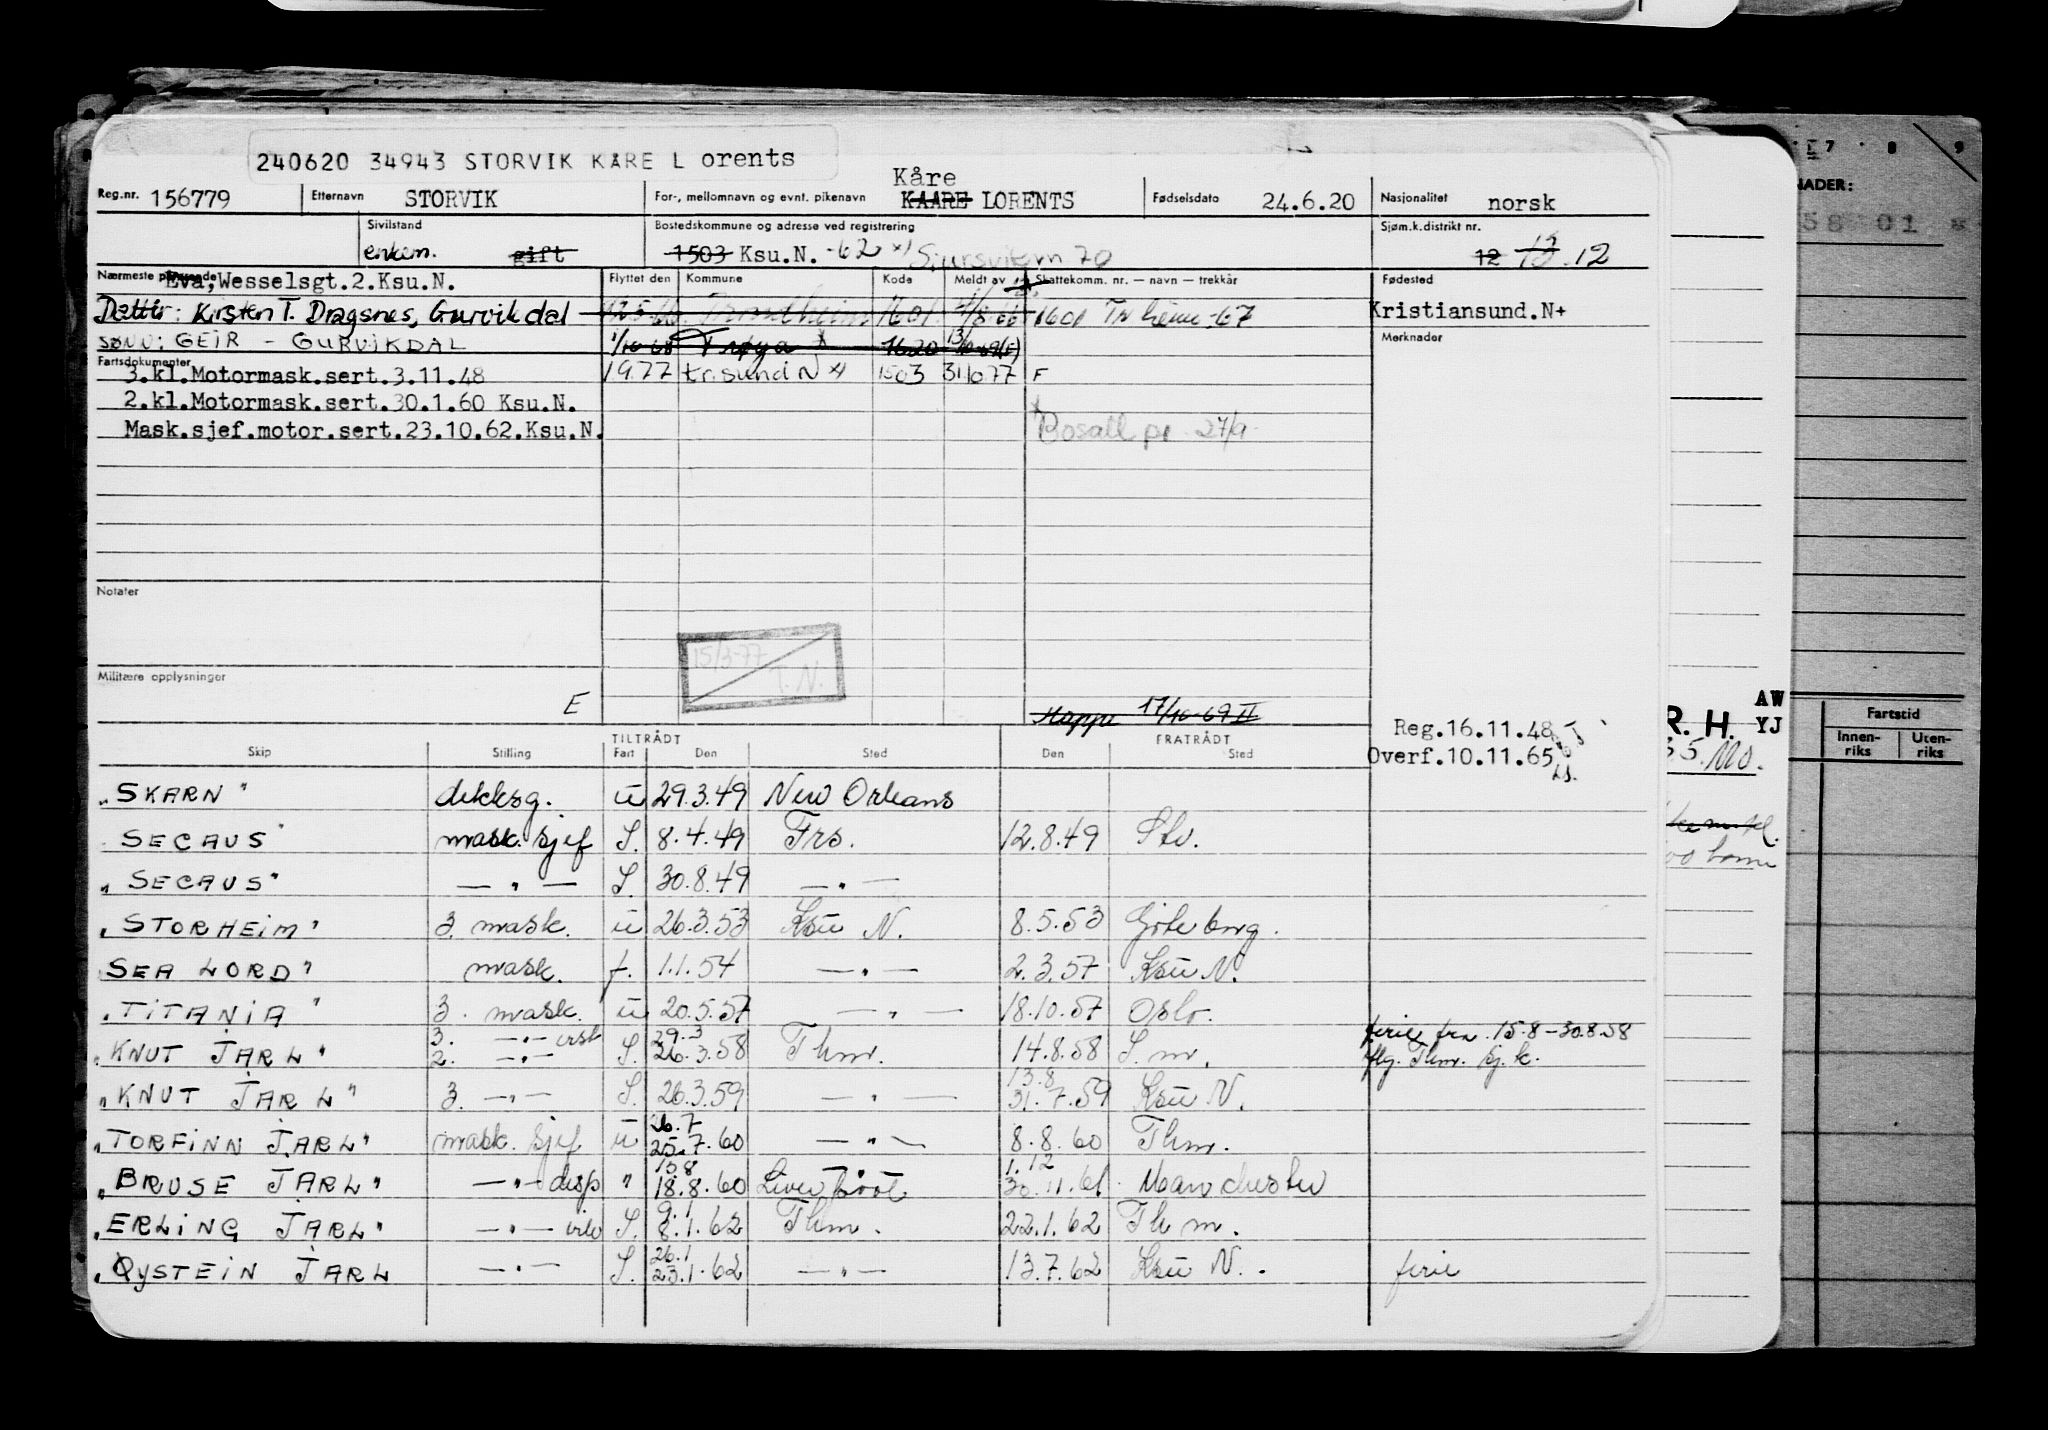 240620 34943 STORVIK KÅRE L orents
Reg.nr. 156779 Etternavn STORVIK For-, mellomnavn og evnt. pikenavn Kåre KAARE LORENTS Fødselsdato 24.6.20 Nasjonalitet norsk
Sivilstand enkem. gift Bostedskommune og adresse ved registrering 1503 Ksu.N. -62 Sjøm.k.distrikt nr. 12 13 12
Nærmeste pårørende Eva, Wesselsgt.2.Ksu.N. Flyttet den Kommune Kode Meldt av Skattekomm. nr. — navn — trekkår Fødested
Datter: Kirsten T. Dragsnes, Gurvikdal Trondheim 1601 1601 -67 Kristiansund.N+
SØNN: GEIR - GURVIKDAL 1/10-68 Frøya 1620 13/10-69(E) Merknader
Fartsdokumenter
3.kl.Motormask.sert.3.11.48 1977 Kr.sund N x) 1503 31/10 77 F
2.kl.Motormask.sert.30.1.60 Ksu.N.
Mask.sjef.motor.sert.23.10.62.Ksu.N. Bosatt pr 27/9
Notater
15/3-77 T.N.
Militære opplysninger
E Mappe 17/10-69 II
Reg.16.11.48
Overf.10.11.65
TILTRÅDT FRATRÅDT
Skip Stilling Fart Den Sted Den Sted
"SKARN" dekksg. u 29.3.49 New Orleans
"SECAUS" mask. sjef S. 8.4.49 Frs. 12.8.49 Stv.
"SECAUS" — " — S. 30.8.49 — " —
"STORHEIM" 3. mask. u 26.3.53 Ksu N. 8.5.53 Göteborg.
SEA LORD" mask. f. 1.1.54 — " — 2.3.57 Ksu N.
"TITANIA" 3. mask. u 20.5.57 — " — 18.10.57 Oslo.
3. — " — 29.3 ferie fra 15.8-30.8.58
"KNUT JARL" 2. — " — S. 26.3.58 Thm. 14.8.58 S. m. flg. Thm. sj.k.
13.8
"KNUT JARL" 3. — " — S. 26.3.59 — " — 31.7.59 Ksu N.
26.7
"TORFINN JARL" mask. sjef u 25.7.60 — " — 8.8.60 Thm.
15.8 1.12
"BRUSE JARL" — " — disp " 18.8.60 Liverpool 30.11.61 Manchester
9.1
"ERLING JARL" — " — S. 8.1.62 Thm. 22.1.62 Thm.
26.1
"ØYSTEIN JARL — " — S. 23.1.62 — " — 13.7.62 Ksu N. ferie
7 8 9
NADER:
58 01
AW
R. H. YJ
Fartstid
Innenriks Utenriks